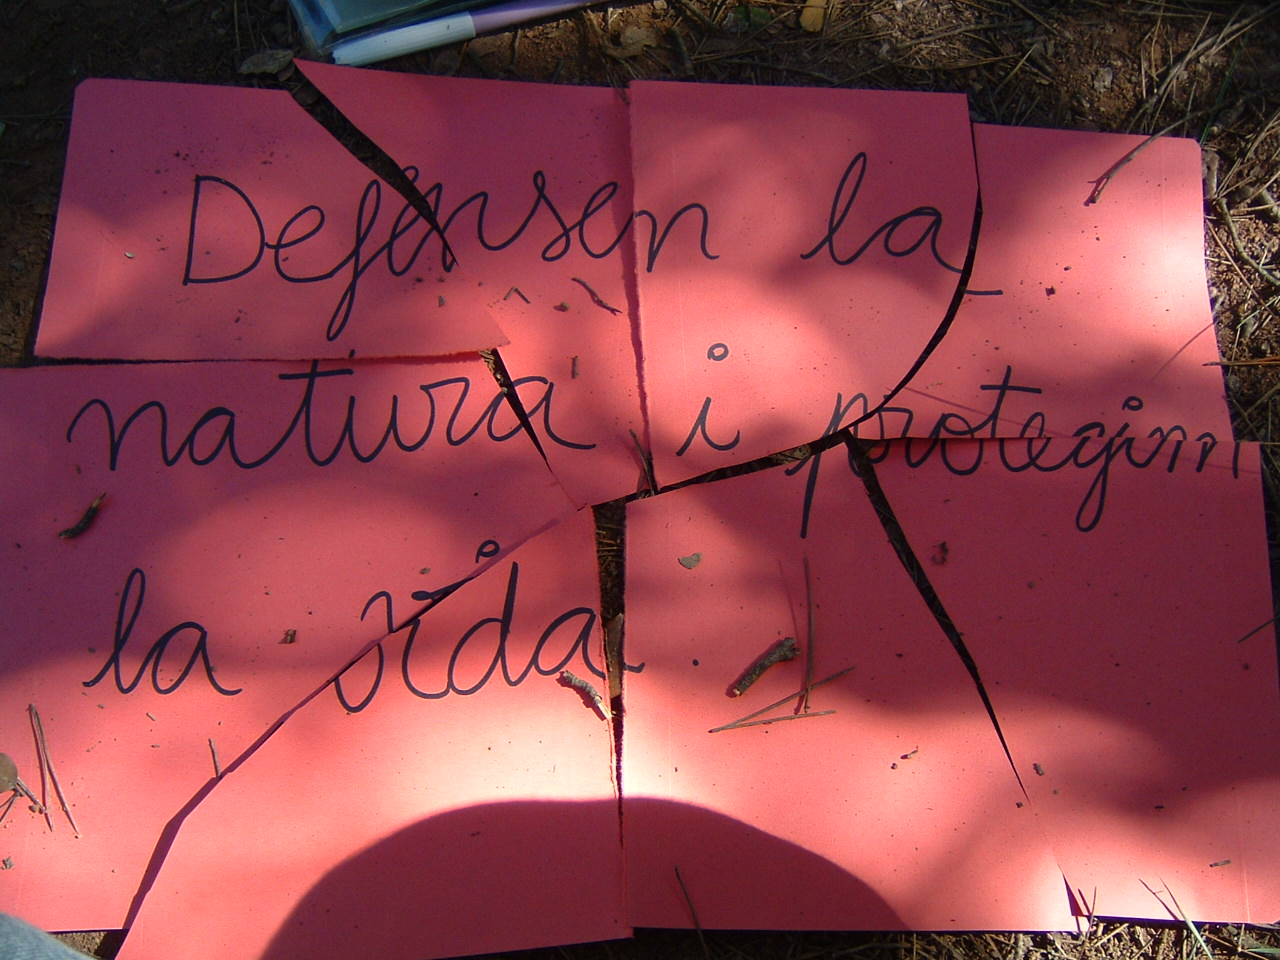 Defensen la
natura i protegim
la vida.